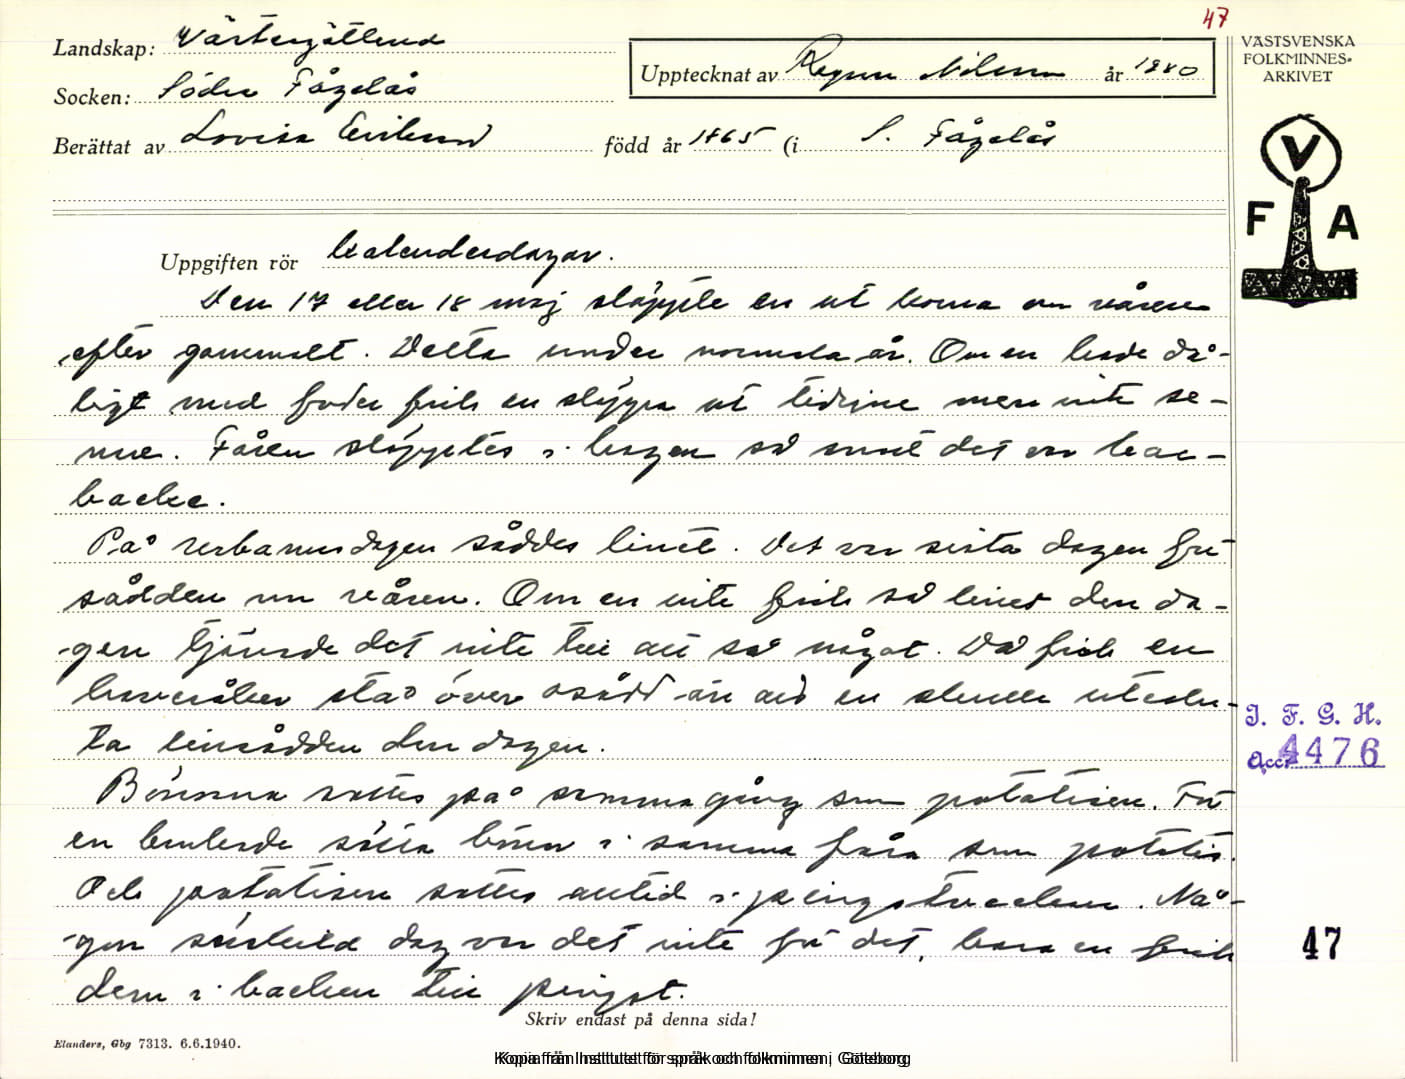 47
Landskap: Västergötland
Socken: Söder Fågelås
Upptecknat av Ragnar Nilsson år 1940
Berättat av Lovisa född år 1865 (i S. Fågelås
VÄSTSVENSKA
FOLKMINNES-
ARKIVET
V
F A
Uppgiften rör Kalenderdagar.
Den 17 eller 18 maj släppte en ut korna om våren
efter gammalt. Detta under normala år. Om en hade då-
ligt med foder fick en släppa ut tidigare men inte se-
nare. Fåren släpptes i hagen så snart det var bar-
backe.
På urbanusdagen såddes linet. Det var sista dagen för
sådden om våren. Om en inte fick så linet den da-
gen tjänade det inte till att så något. Då fick en
havreåker stå över osådd än att en skulle uteslu-
ta linsådden den dagen.
Bönorna sattes på samma gång som potatisen. För
en brukade sätta bönor i samma fåra som potatis.
Och potatisen sattes alltid i pingstveckan. Nå-
gon särskild dag var det inte för det, bara en fick
dem i backen till pingst.
Skriv endast på denna sida!
I. F. G. H.
Acc. 4476
47
Elanders, Gbg 7313. 6.6.1940.
Kopia från Institutet för språk och folkminnen i Göteborg